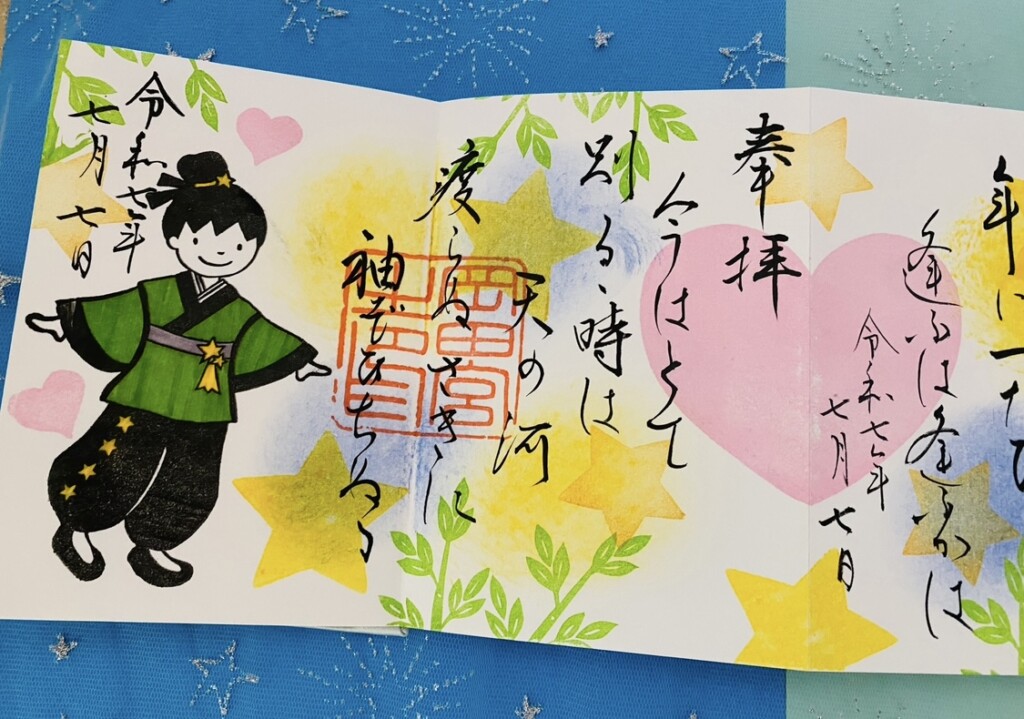 年に一たび
逢ふは逢ふかは
令和七年
七月七日
奉拝
今はとて
別るゝ時は
天の河
渡らぬさきに
袖ぞひちぬる
令和七年
七月七日